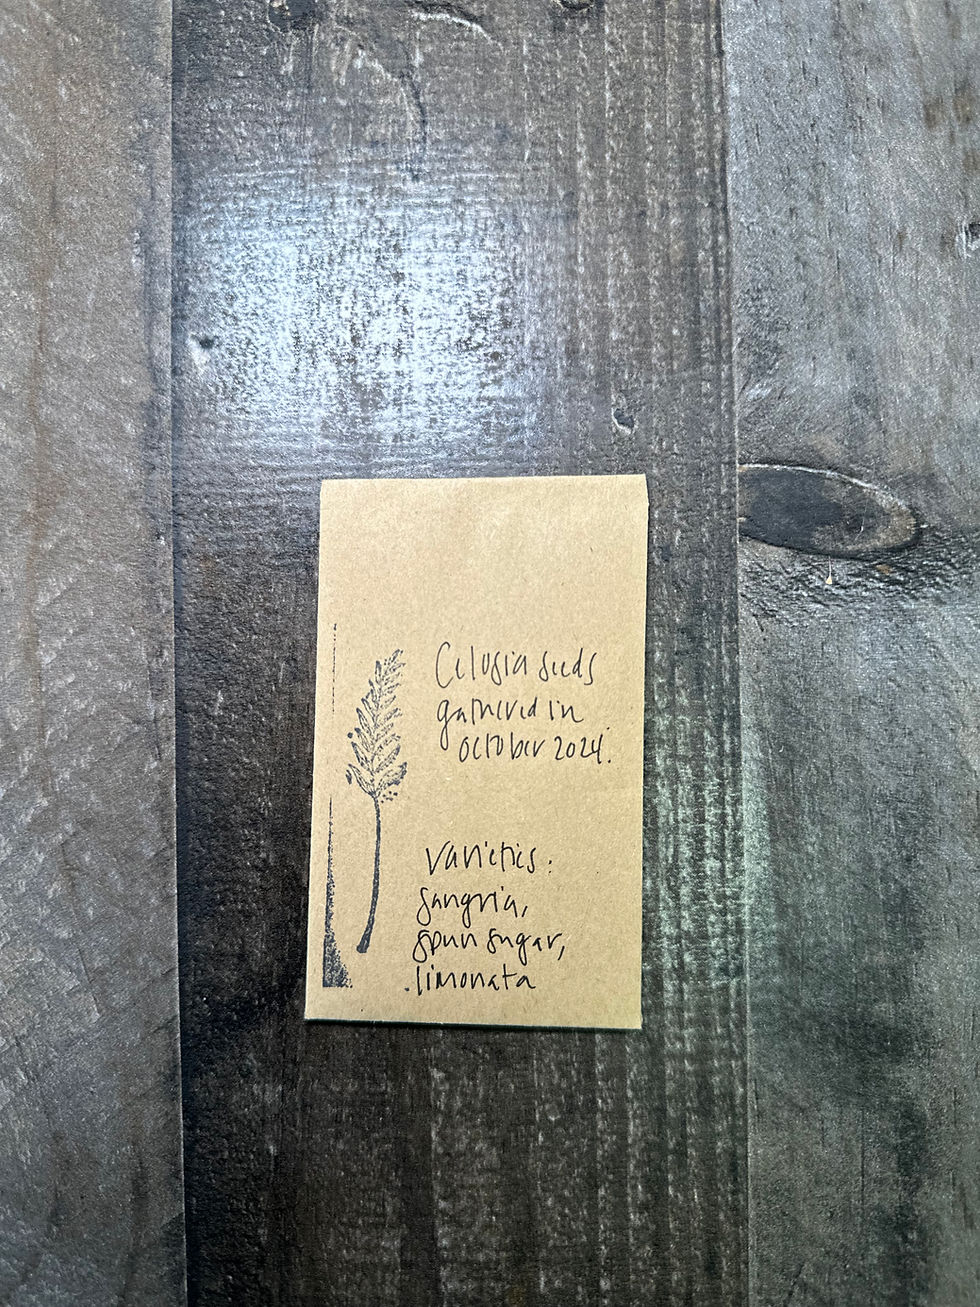 Celosia seeds
gathered in
october 2024.
Varieties:
sangria,
spun sugar,
limonata